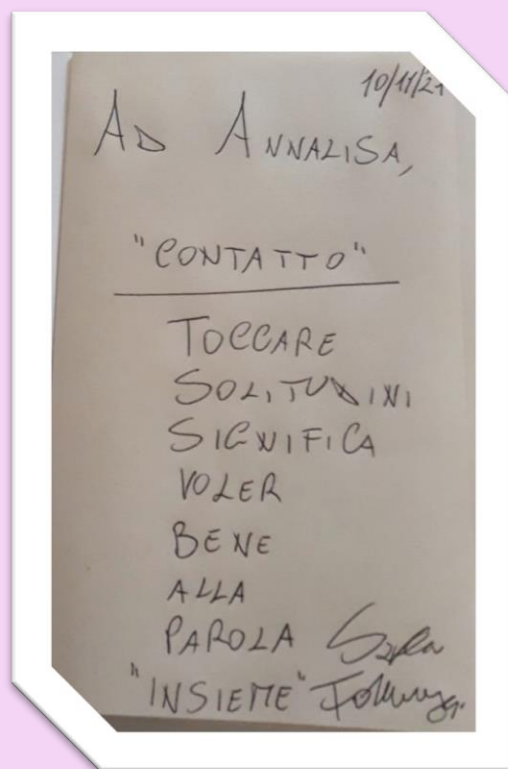 10/11/21
AD ANNALISA,
"CONTATTO"
TOCCARE
SOLITUDINI
SIGNIFICA
VOLER
BENE
ALLA
PAROLA
"INSIEME"